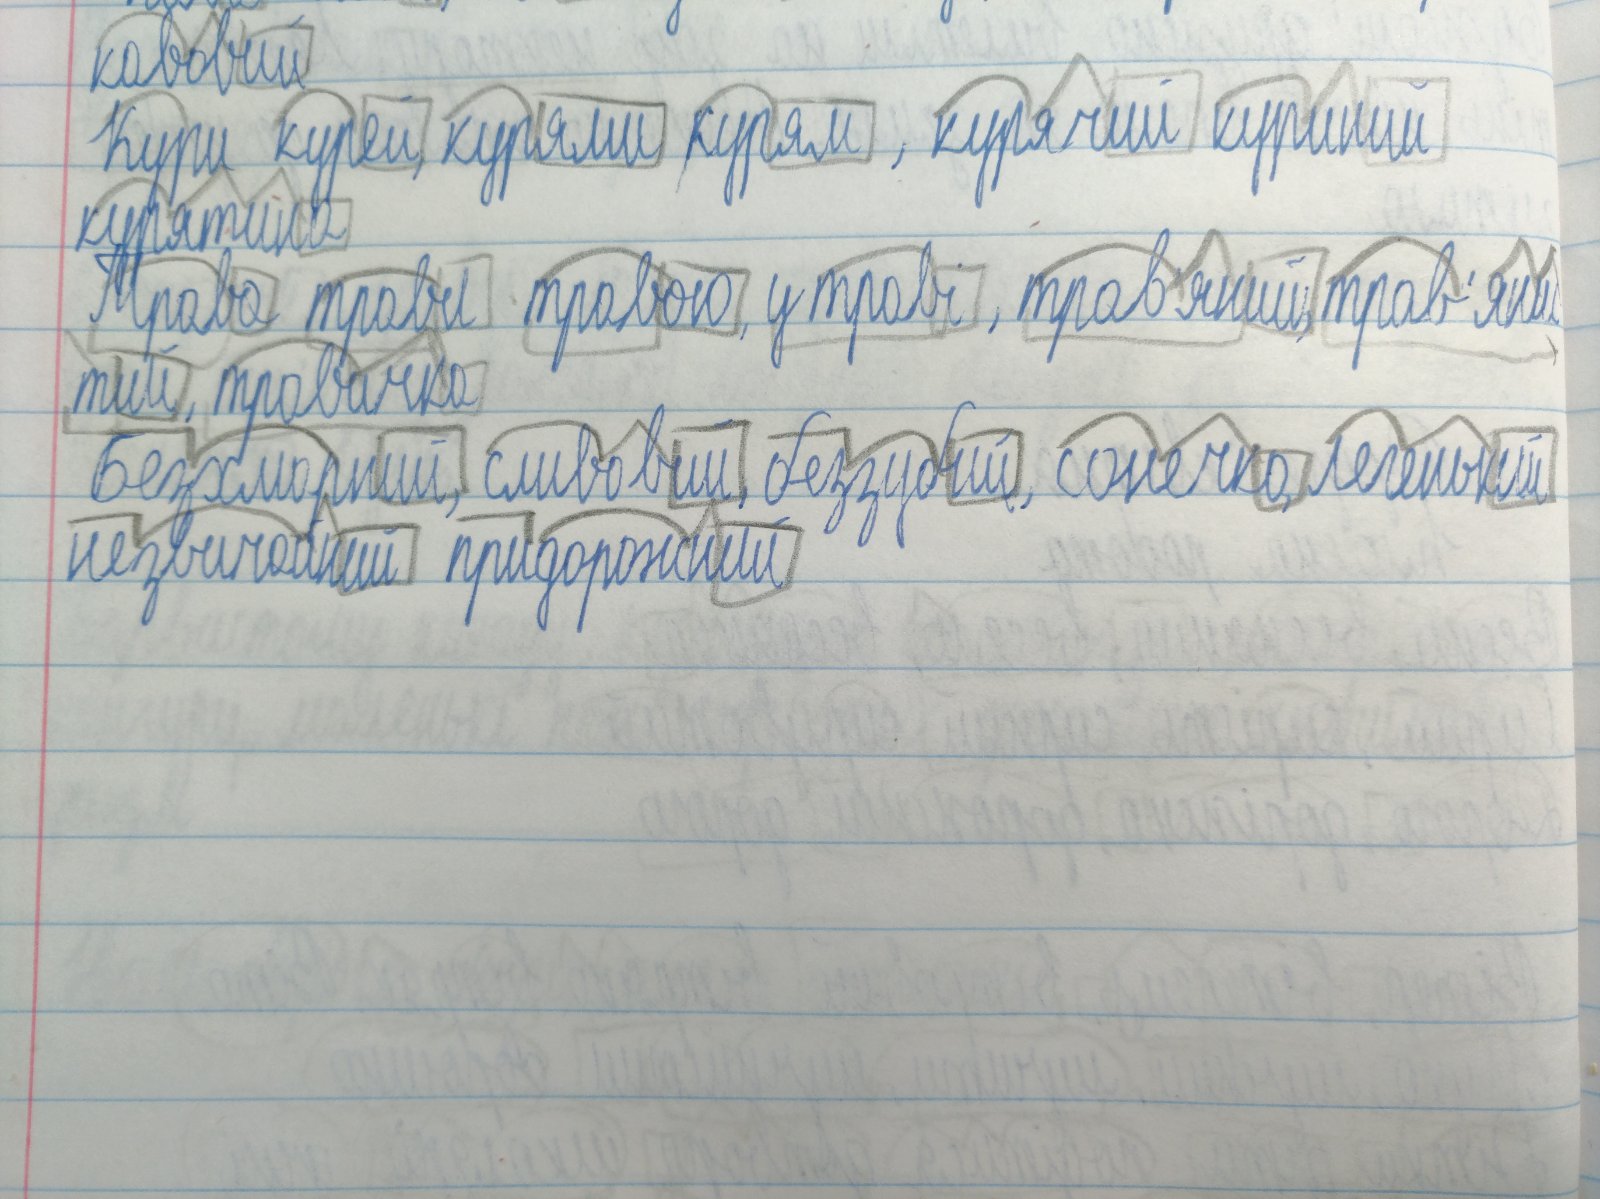 кавовий
Кури курей, курями курям, курячий куриний
курятина
Трава трави травою, у траві, трав'яний, трав'яни
тий, травичка
Безхмарний, сливовий, беззубий, сонечко, легенький
незвичайний придорожній